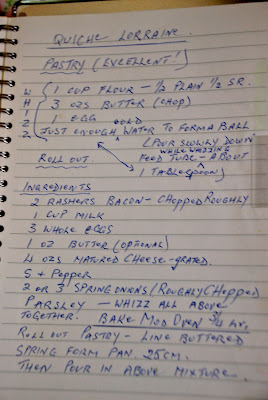 QUICHE LORRAINE.
PASTRY (EXCELLENT!)
W { 1 CUP FLOUR - 1/2 PLAIN 1/2 S.R.
H 3 OZS BUTTER (CHOP)
I 1 EGG COLD
Z JUST ENOUGH ^ WATER TO FORM A BALL
Z (POUR SLOWLY DOWN
WHILE WHIZZING
ROLL OUT FEED TUBE - ^ ABOUT
1 TABLESPOON)
INGREDIENTS
2 RASHERS BACON - CHOPPED ROUGHLY
1 CUP MILK
3 WHOLE EGGS
1 OZ BUTTER (OPTIONAL)
4 OZS MATURED CHEESE - GRATED.
S + PEPPER
2 OR 3 SPRING ONIONS (ROUGHLY CHOPPED
PARSLEY - WHIZZ ALL ABOVE
TOGETHER. BAKE MOD OVEN 3/4 HR.
ROLL OUT PASTRY - LINE BUTTERED
SPRING FORM PAN. 25CM.
THEN POUR IN ABOVE MIXTURE.